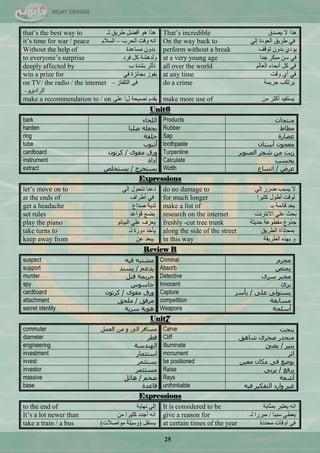 HELMY DESIGNS
that's the best way to هذا هو أفضل طريق لـ That's incredible هذا لا يصدق
it's time for war / peace انه وقت الحرب – السلام On the way back to في طريق العودة إلي
Without the help of بدون مساعدة perform without a break يودي بدون توقف
to everyone's surprise ولدهشة كل فرد at a very young age في سن مبكر جدا
deeply affected by تأثر بشدة ب all over the world في كل أنحاء العالم
win a prize for يفوز بجائزة في at any time في أي وقت
on TV/ the radio / the internet في التلفاز – الراديو- do a crime يرتكب جريمة
make a recommendation to / on يقدم نصيحة ل/ علي make more use of يستفيد أكثر من
Unit6
bark اللحاء Products منتجات
harden يجعله صلبا Rubber مطاط
ring حلقة Sap عصارة
tube أنبوب toothpaste معجون أسنان
cardboard ورق مقوى / كرتون Turpentine زيت من شجر الصنوبر
instrument أداة Calculate يحسب
extract يستخرج / يستخلص Width عرض / اتساع
Expressions
let's move on to دعنا نتحول إلي do no damage to لا يسبب ضرر إلي
at the ends of في أطراف for much longer لوقت أطول كثيرا
get a headache لديه صداع make a list of يعد قائمة بـ
set rules يضع قواعد research on the internet بحث علي الانترنت
play the piano يعزف علي البيانو freshly -cut tree trunk جذوع مقطوعة حديثة
take turns to يأخذ دورة لـ along the side of the street بمحاذاة الطريق
keep away from يبعد عن in this way و بهذه الطريقة
Review B
suspect مشتبه فيه Criminal مجرم
support يدعم / يسند Absorb يمتص
murder جريمة قتل Detective مخبر سرى
spy جاسوس Innocent برئ
cardboard ورق مقوى / كرتون Capture يستولى على / يأسر
attachment مرفق / ملحق competition مسابقة
secret identity هوية سرية Weapons أسلحة
Unit7
commuter مسافر الى و من العمل Carve ينحت
diameter قطر Cliff منحدر صخرى شاهق
engineering الهندسة Illuminate ينير / يضئ
investment استثمار monument أثر
invest يستثمر be positioned يوضع فى مكان معين
investor مستثمر Raise يرفع / يربى
massive ضخم / هائل Rays أشعة
base قاعدة unthinkable غير وارد التفكير فيه
Expressions
to the end of إلي نهاية It is considered to be انه يعتبر بمثابة
It's a lot newer than انه أجدد كثيرا من give a reason for يعطي سببا / مبررا لـ
take a train / a bus يستقل (وسيلة مواصلات) at certain times of the year في أوقات محددة
25